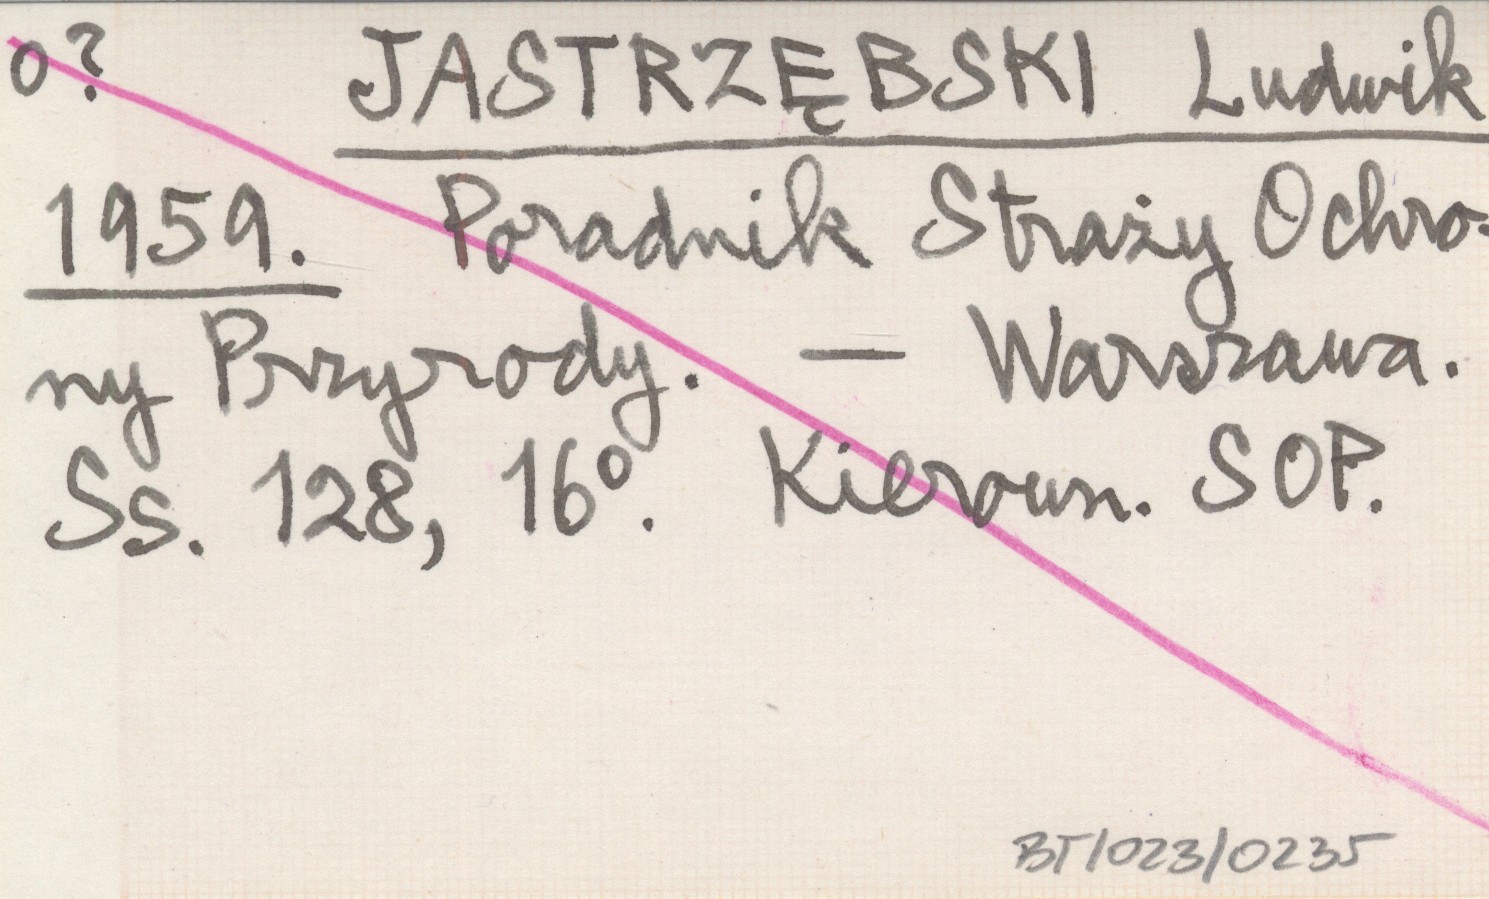 o? JASTRZĘBSKI Ludwik
1959. Poradnik Straży Ochro-
ny Przyrody. — Warszawa.
Ss. 128, 16°. Kierown. SOP.
BT/023/0235